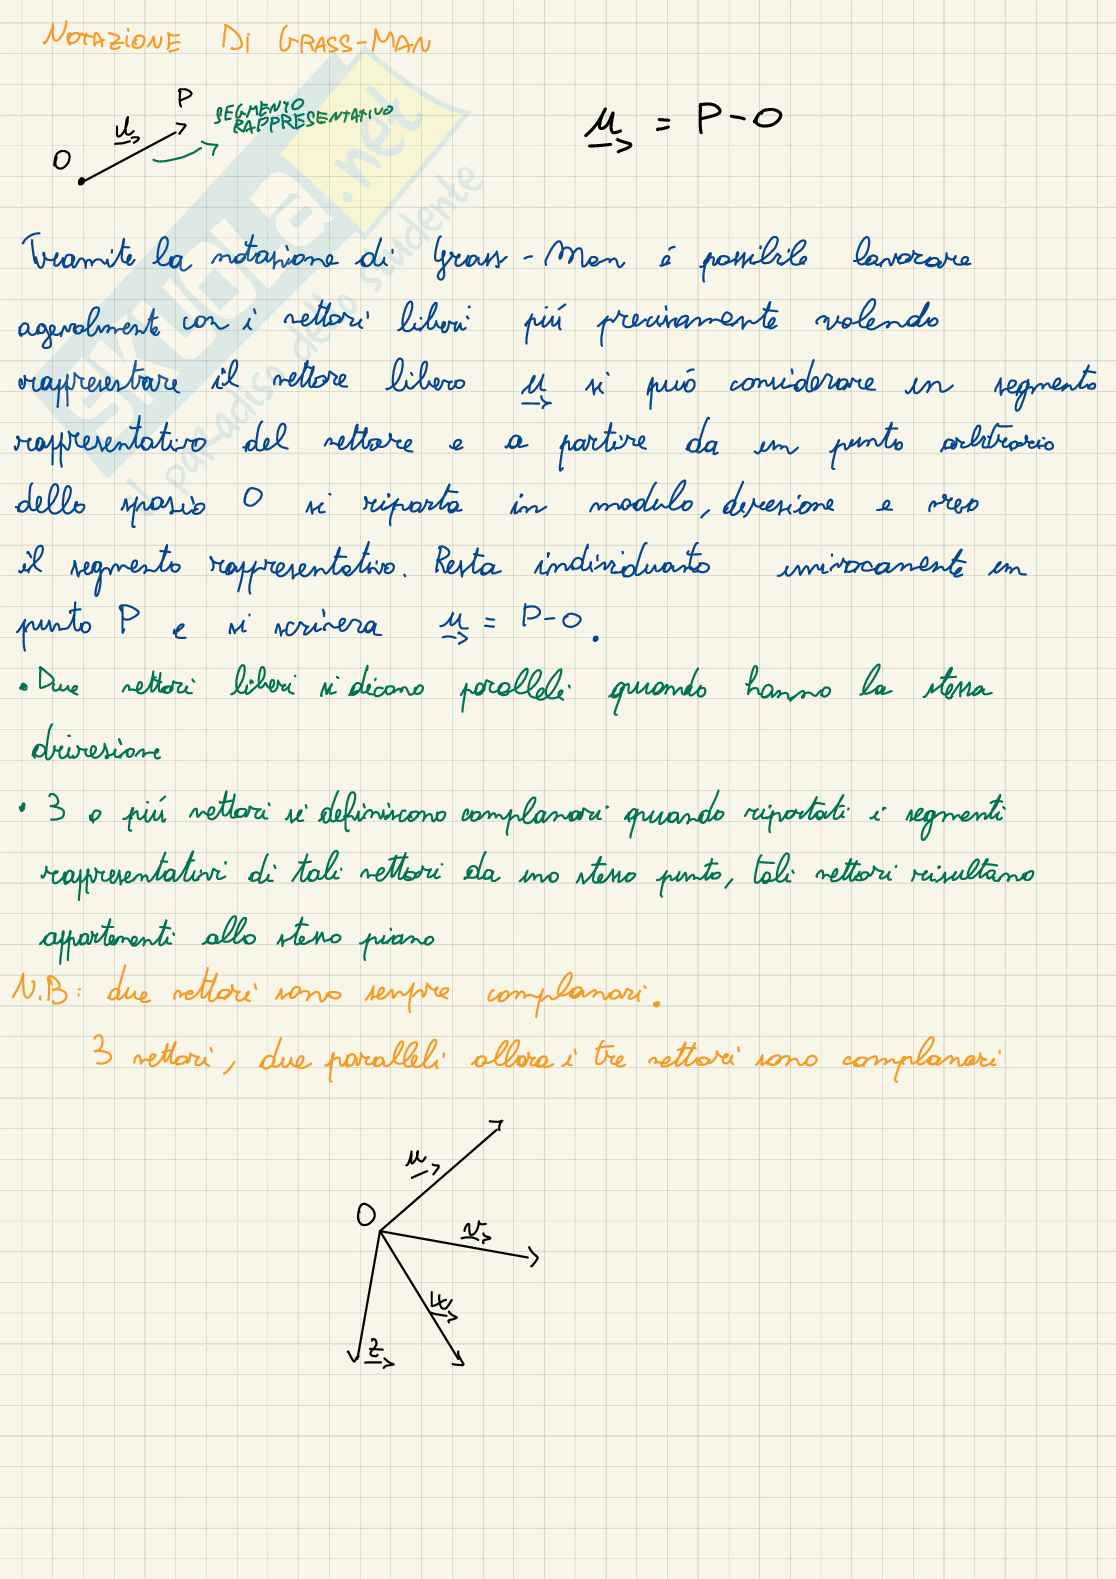 NOTAZIONE DI GRASS-MAN
P
SEGMENTO
RAPPRESENTATIVO
u
O
u = P-O
SKUOLA.net
il paradiso dello studente
Tramite la notazione di Grass-Man é possibile lavorare
agevolmente con i vettori liberi piú precisamente volendo
rappresentare il vettore libero u si puó considerare un segmento
rappresentativo del vettore e a partire da un punto arbitrario
dello spazio O si riporta in modulo, direzione e verso
il segmento rappresentativo. Resta individuato univocamente un
punto P e si scriverà u = P-O.
• Due vettori liberi si dicono paralleli quando hanno la stessa
direzione
• 3 o piú vettori si definiscono complanari quando riportati i segmenti
rappresentativi di tali vettori da uno stesso punto, tali vettori risultano
appartenenti allo stesso piano
N.B: due vettori sono sempre complanari.
3 vettori, due paralleli allora i tre vettori sono complanari
u
O
v
w
z